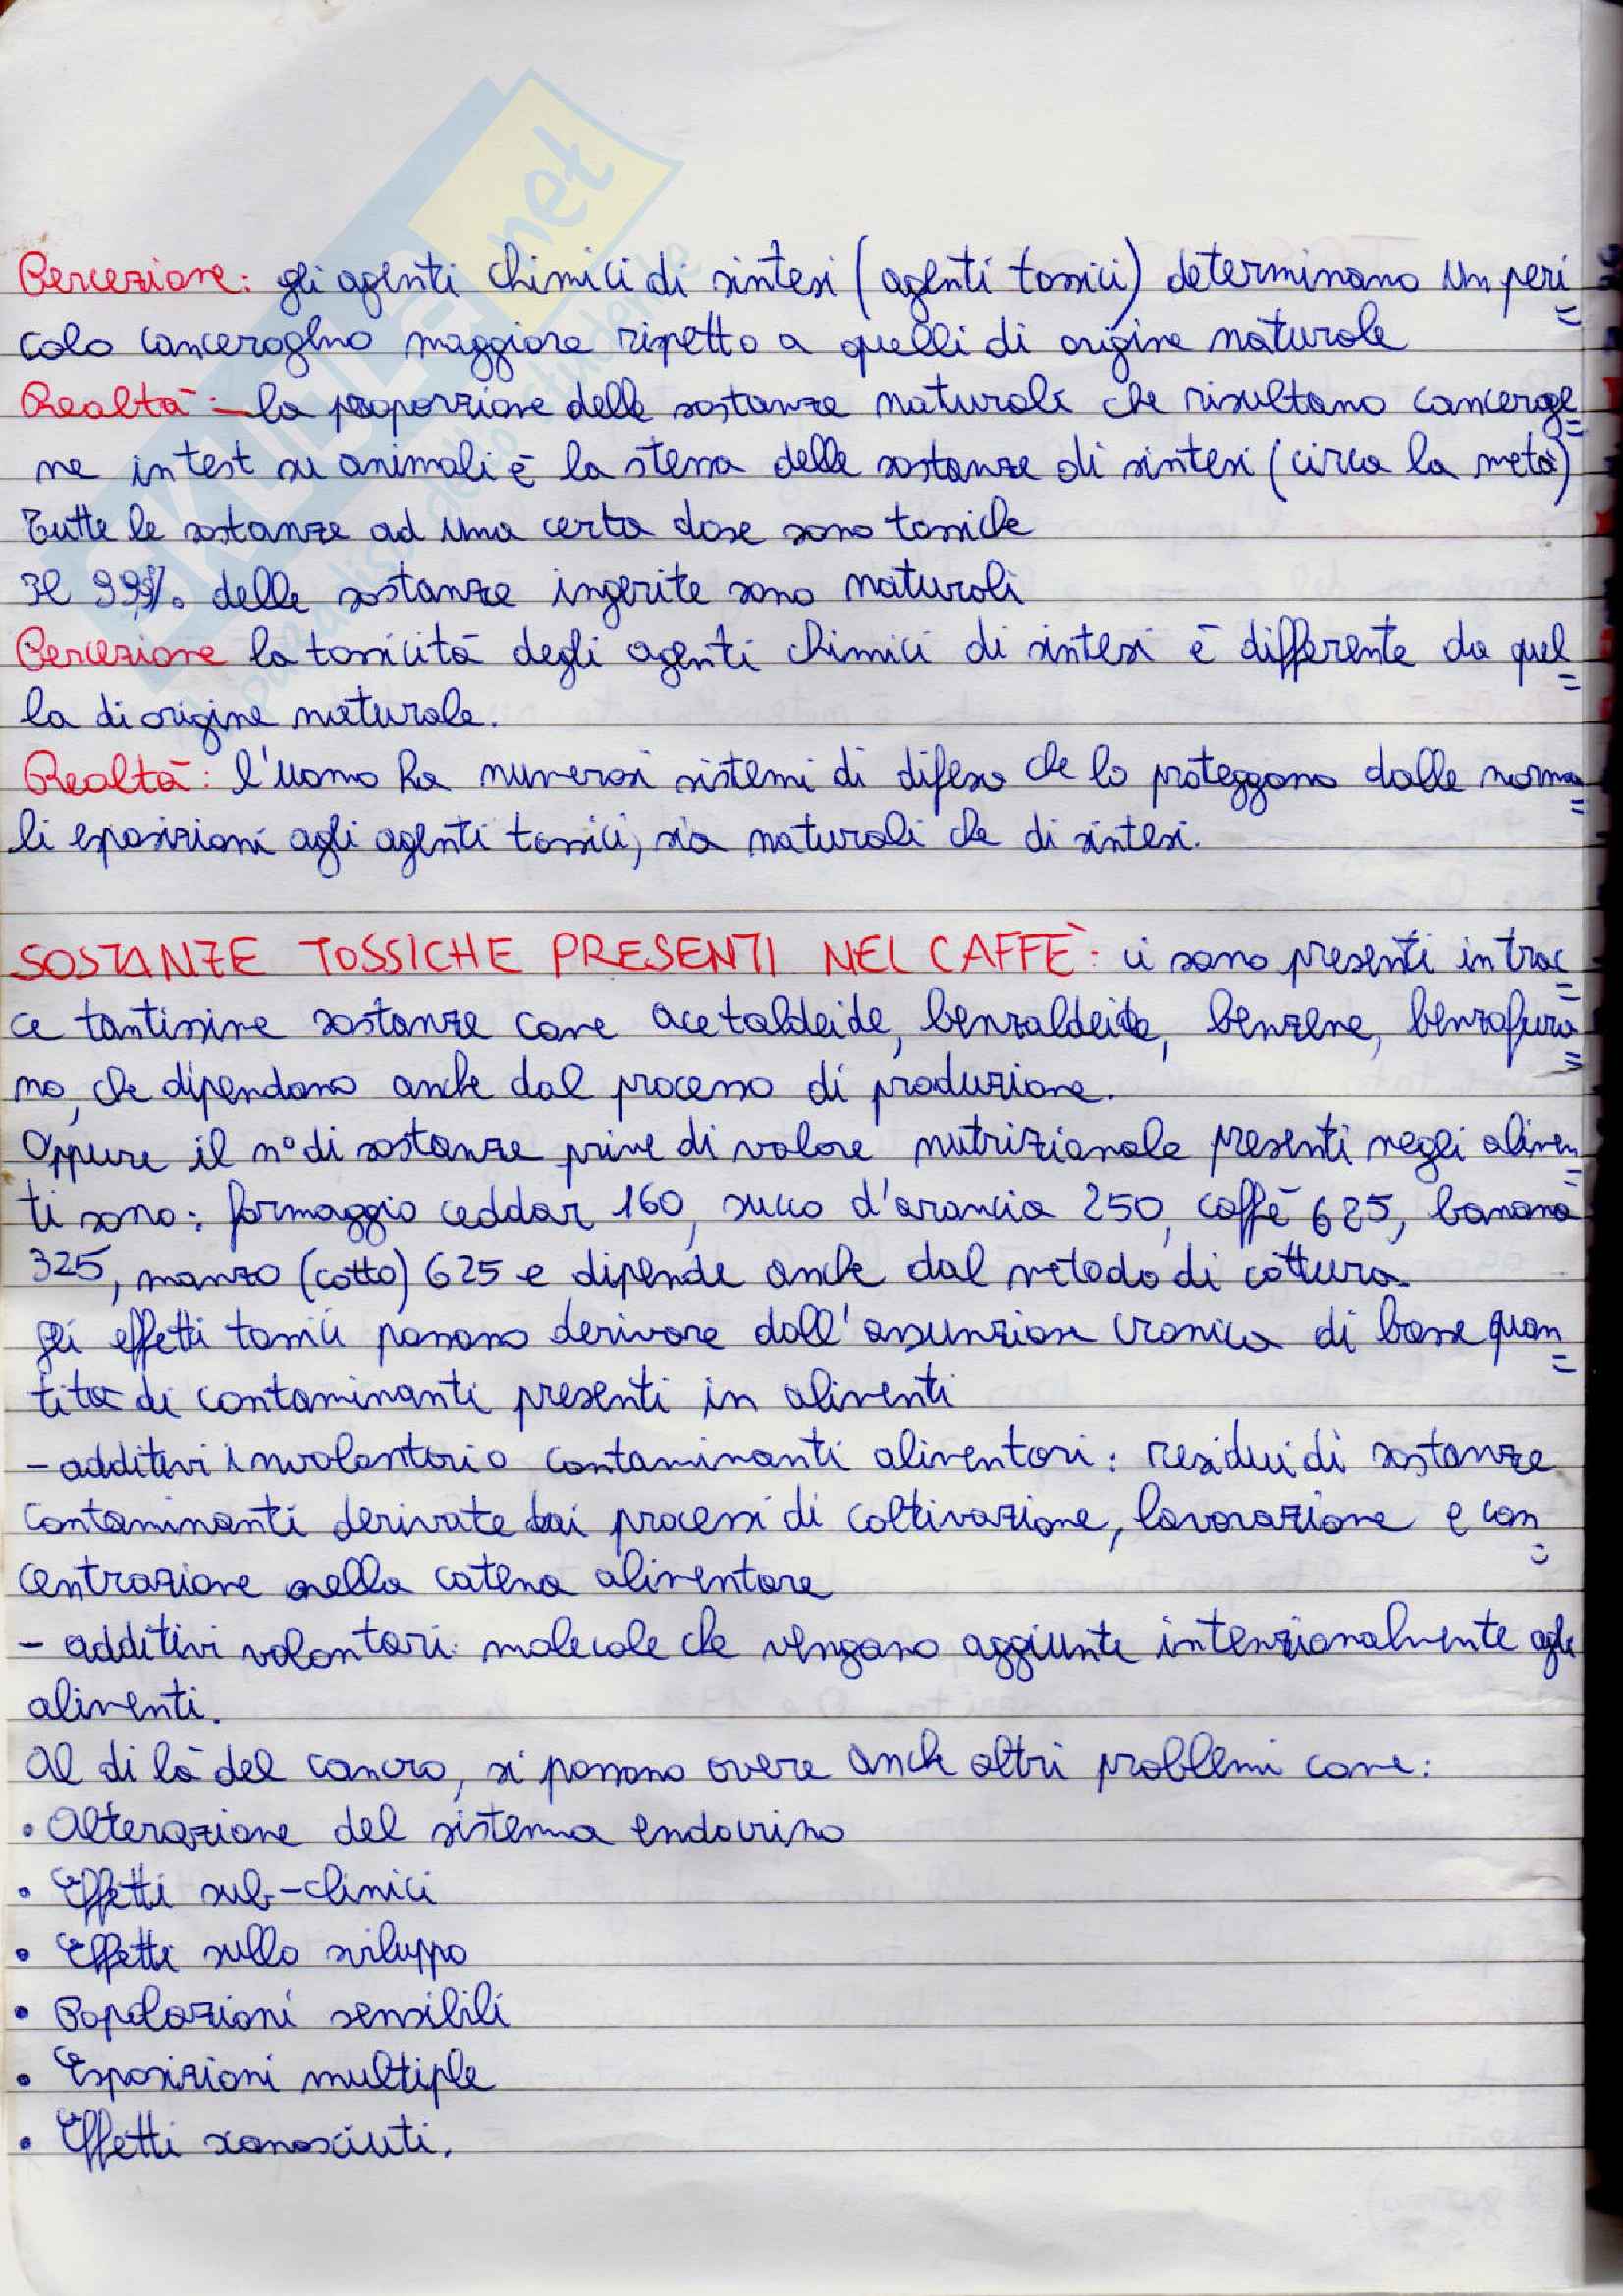 SKUOLA.net
paradiso dello studente
Percezione: gli agenti chimici di sintesi (agenti tossici) determinano un peri=
colo cancerogeno maggiore rispetto a quelli di origine naturale
Realtà: la proporzione delle sostanze naturali che risultano canceroge=
ne in test su animali è la stessa delle sostanze di sintesi (circa la metà)
Tutte le sostanze ad una certa dose sono tossiche
Il 99% delle sostanze ingerite sono naturali
Percezione la tossicità degli agenti chimici di sintesi è differente da quel=
la di origine naturale.
Realtà: l'uomo ha numerosi sistemi di difesa che lo proteggono dalle norma=
li esposizioni agli agenti tossici, sia naturali che di sintesi.
SOSTANZE TOSSICHE PRESENTI NEL CAFFÈ: ci sono presenti in trac=
ce tantissime sostanze come acetaldeide, benzaldeide, benzene, benzofura=
no, che dipendono anche dal processo di produzione.
Oppure il n° di sostanze prive di valore nutrizionale presenti negli alimen=
ti sono: formaggio ceddar 160, succo d'arancia 250, caffè 625, banana
325, manzo (cotto) 625 e dipende anche dal metodo di cottura
gli effetti tossici possono derivare dall'assunzione cronica di basse quan=
tità di contaminanti presenti in alimenti
- additivi involontari o contaminanti alimentari: residui di sostanze
contaminanti derivate dai processi di coltivazione, lavorazione e con=
centrazione nella catena alimentare
- additivi volontari: molecole che vengano aggiunte intenzionalmente agli
alimenti.
Al di là del cancro, si possono avere anche altri problemi come:
• Alterazione del sistema endocrino
• Effetti sub-clinici
• Effetti sullo sviluppo
• Popolazioni sensibili
• Esposizioni multiple
• Effetti sconosciuti.